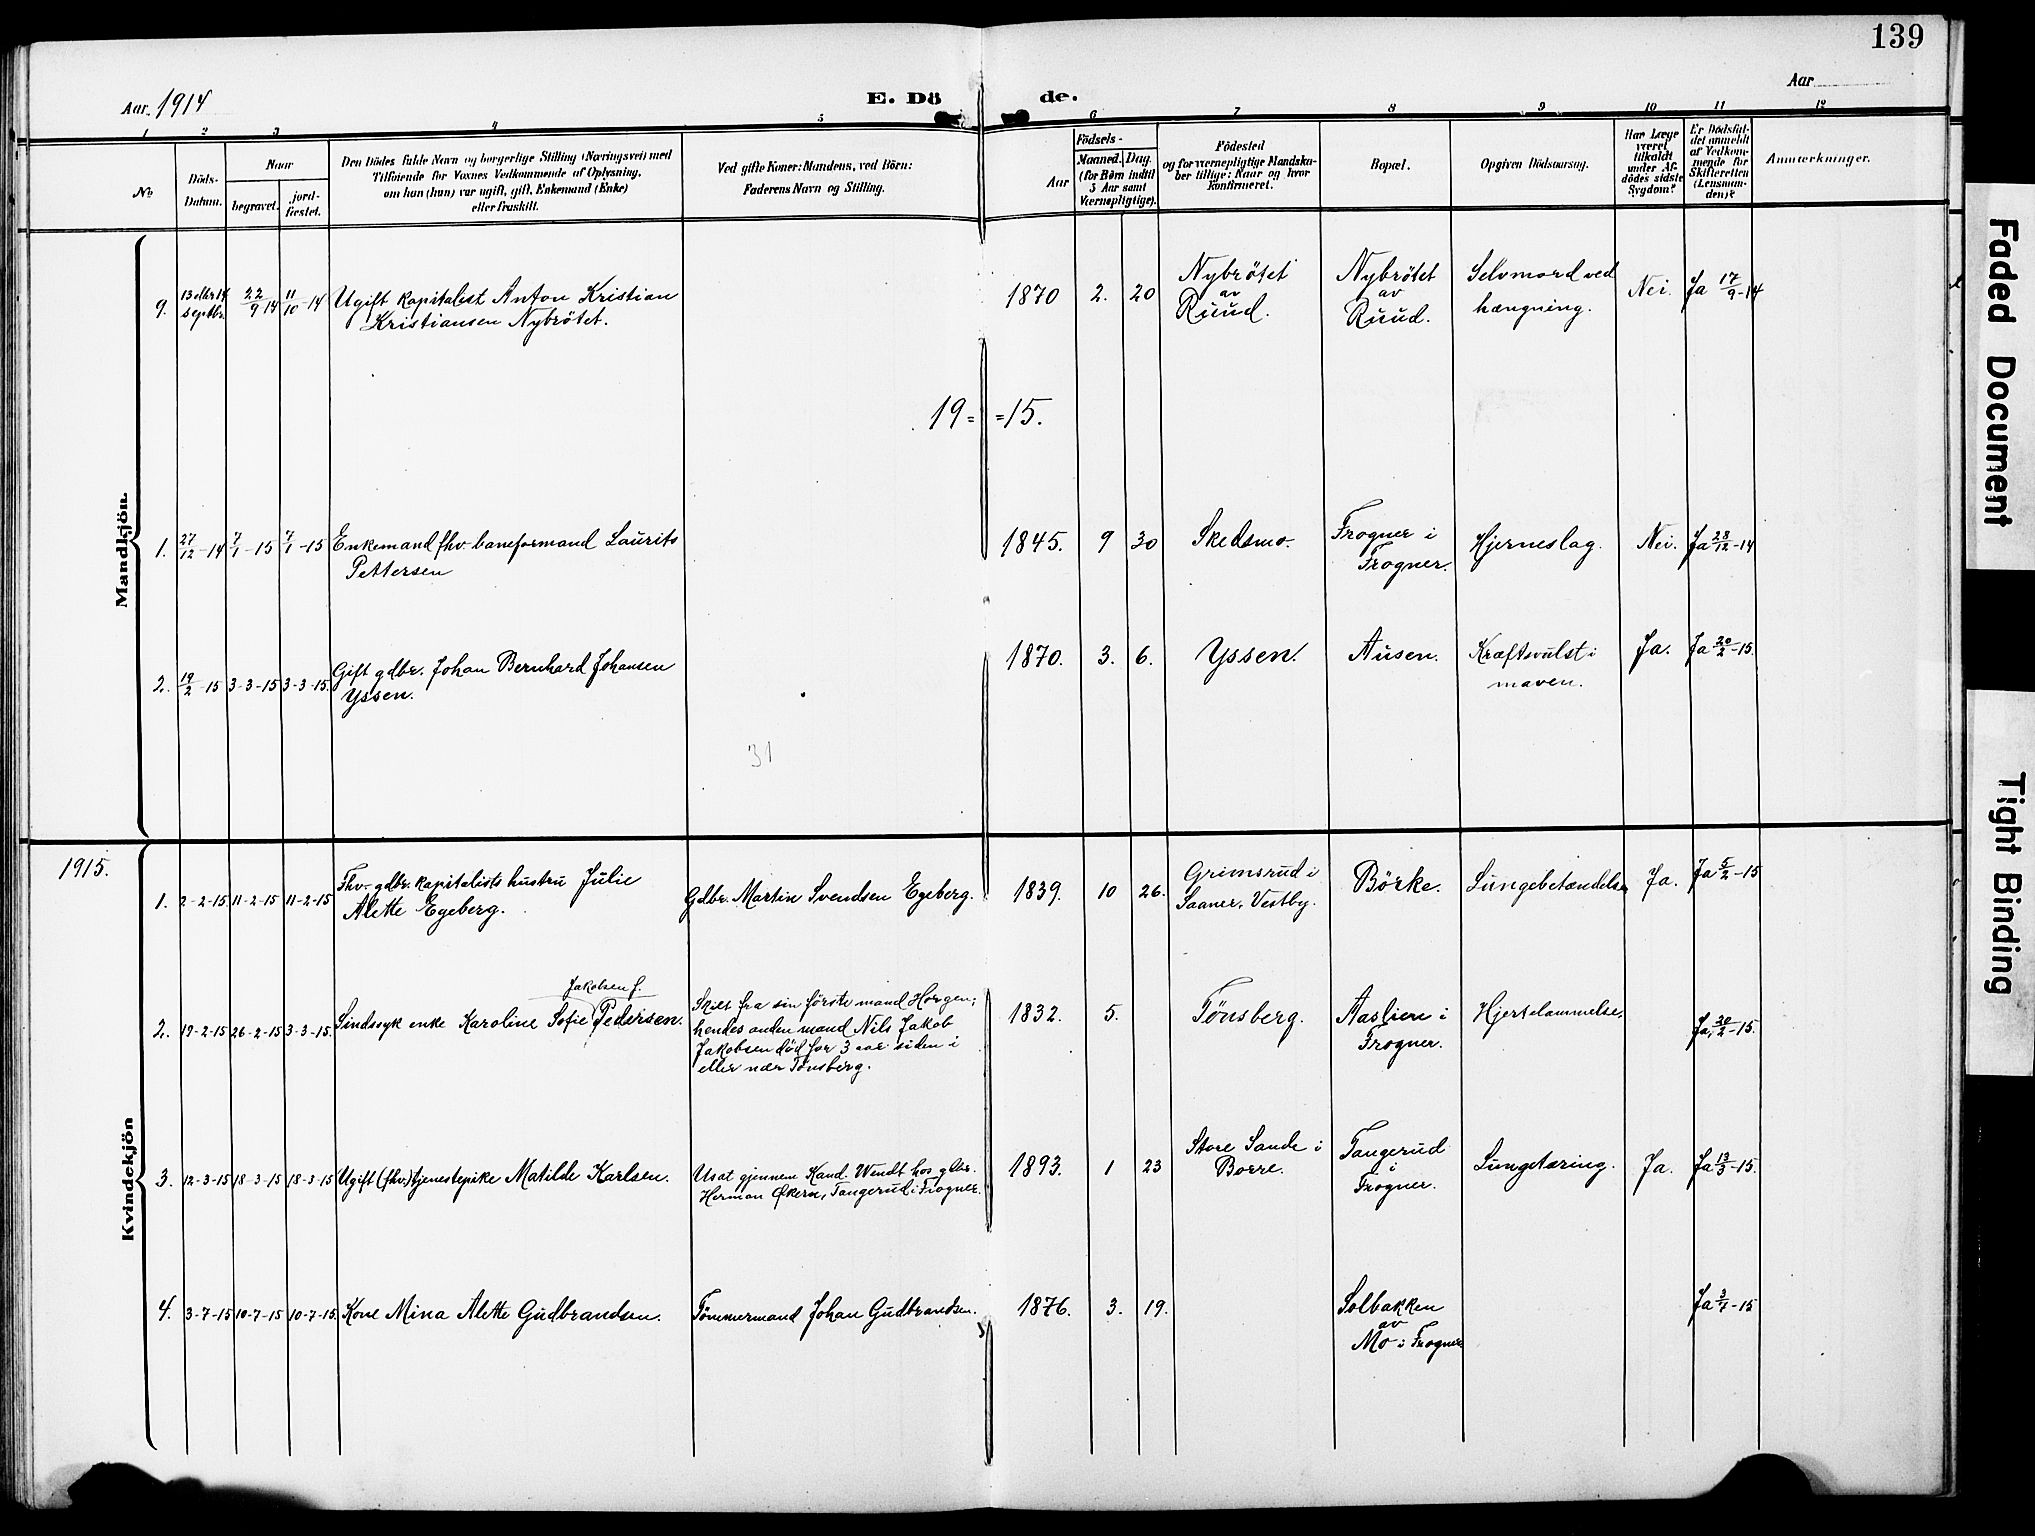 139
Aar 1914
E. Dö de.
Aar
1 2 3 4 5 6 7 8 9 10 11 12
No
Döds-
Datum.
Naar
begravet.
jord-
fæstet.
Den Dödes fulde Navn og borgerlige Stilling (Næringsvei) med
Tilföiende for Voxnes Vedkommende af Oplysning,
om han (hun) var ugift, gift, Enkemand (Enke)
eller fraskilt.
Ved gifte Koner: Mandens, ved Börn:
Faderens Navn og Stilling.
Födsels-
Aar
Maaned. Dag.
(for Börn indtil
5 Aar samt
Værnepligtige).
Födested
og for værnepligtige Mandska-
ber tillige: Naar og hvor
konfirmeret.
Bopæl.
Opgiven Dödsaarsag.
Har Læge
været
tilkaldt
under Af-
dödes sidste
Sygdom?
Er Dödsfal-
det anmeldt
af Vedkom-
mende for
Skifteretten
(Lensman-
den)?
Anmærkninger.
Mandkjön.
9. 13 septbr. 22/9 14 11/10-14 Ugift kapitalist Anton Kristian
Kristiansen Nybrötet.
1870 2. 20 Nybrötet
av
Ruud.
Nybrötet
av
Ruud.
Selvmord ved
hængning.
Nei. Ja 17/9-14
19= =15.
1. 27/12-14 7/1-15 7/1-15 Enkemand fhv. baneformand Laurits
Pettersen
1845. 9 30 Skedsmo.
Frogner i
Frogner.
Hjerneslag. Nei. Ja 28/12-14
2. 19/2-15 3-3-15 3-3-15. Gift gdbr. Johan Bernhard Johansen
Yssen.
1870. 3. 6. Yssen. Ausen. Kræftsvulst i
maven.
Ja. Ja 20/2-15.
31
1915.
Kvindekjön
1. 2-2-15 11-2-15 11-2-15 Fhv. gdbr. kapitalists hustru Julie
Alette Egeberg.
Gdbr. Martin Svendsen Egeberg.
1839. 10 26. Grimsrud i
Saaner, Vestby.
Börke. Lungebetændelse Ja. Ja 5/2-15
2. 19-2-15 26-2-15 3-3-15. Sindssyk enke Karoline Sofie Pedersen.
Jakobsen f.
Skilt fra sin förste mand Horgen;
hendes anden mand Nils Jakob
Jakobsen död for 3 aar siden i
eller nær Tönsberg.
1832. 5. Tönsberg. Aaslien i
Frogner.
Hjertelammelse. Ja, 20/2-15.
3. 12-3-15 18-3-15 18-3-15 Ugift (fhv) tjenestepike Matilde Karlsen.
Utsat gjennem Kand. Wendt hos gdbr.
Herman Økern, Tangerud i Frogner.
1893. 1 23 Store Sande i
Borre.
Tangerud
i
Frogner.
Lungetæring. Ja. Ja 13/3-15.
4. 3-7-15 10-7-15 10-7-15. Kone Mina Alette Gudbrandsen.
Tömmermand Johan Gudbrandsen.
1876. 3. 19. Solbakken
av
Mo i Frogner
Ja 3/7-15
Faded Document
Tight Binding